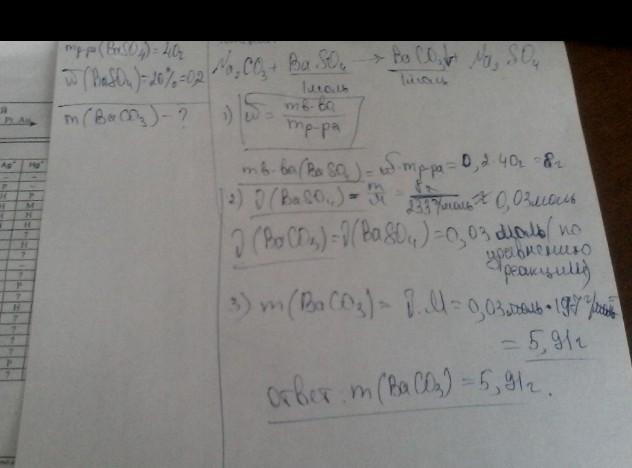 mр-ра(BaSO₄)=40г
ω(BaSO₄)=20%=0,2
m(BaCO₃)-?
Na₂CO₃+BaSO₄→BaCO₃↓+Na₂SO₄
1моль 1моль
1) ω=mв-ва/mр-ра
mв-ва(BaSO₄)=ω·mр-ра=0,2·40г=8г
2) ν(BaSO₄)=m/M=8г/233г/моль≈0,03моль
ν(BaCO₃)=ν(BaSO₄)=0,03 моль(по
уравнению
реакции)
3) m(BaCO₃)=ν·M=0,03моль·197г/моль
=5,91г
ответ: m(BaCO₃)=5,91г.